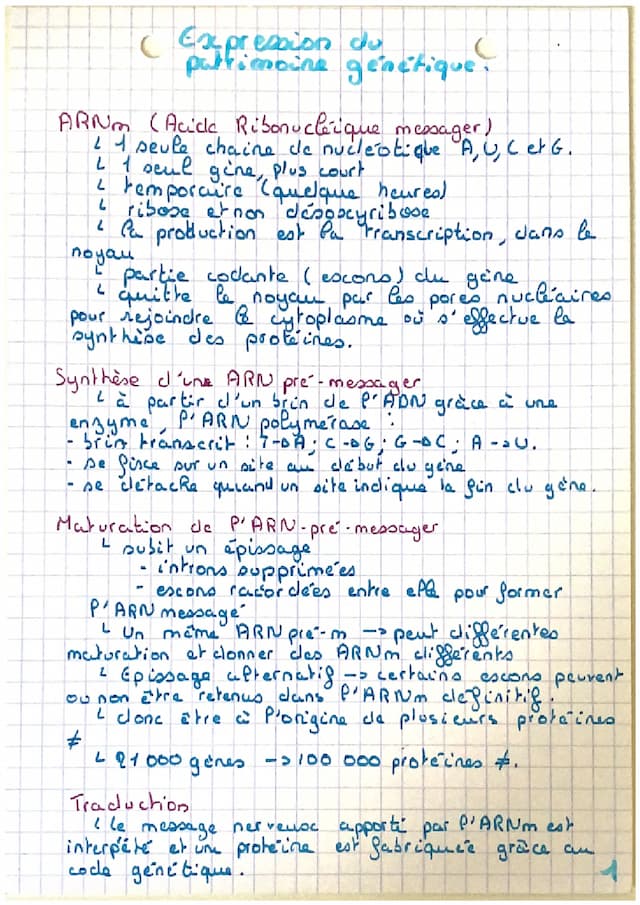 Expression du
patrimoine génétique.
ARNm (Acide Ribonucléique messager)
↳ 1 seule chaine de nucléotique A, U, C et G.
↳ 1 seul gène, plus court
↳ temporaire (quelque heures)
↳ ribose et non désoxcyribose
↳ la production est la transcription, dans le
noyau
↳ partie codante (escons) du gène
↳ quitte le noyau par les pores nucléaires
pour rejoindre le cytoplasme où s'effectue la
synthèse des protéines.
Synthèse d'une ARN pré-messager
↳ à partir d'un brin de l'ADN grâce à une
enzyme, l'ARN polymérase :
- brin transcrit : T→A ; C→G ; G→C ; A→U.
- se fisce sur un site au début du gène
- se détache quand un site indique la fin du gène.
Maturation de l'ARN-pré-messager
↳ subit un épissage
- introns supprimées
- escons racordées entre elle pour former
l'ARN messagé
↳ Un même ARN pré-m → peut différentes
maturation et donner des ARNm différents
↳ Épissage alternatif → certains escons peuvent
ou non être retenus dans l'ARNm définitif.
↳ donc être à l'origine de plusieurs protéines
≠
↳ 21 000 gènes → 100 000 protéines ≠.
Traduction
↳ le message nerveux apporté par l'ARNm est
interpété et une protéine est fabriquée grâce au
code génétique.
1